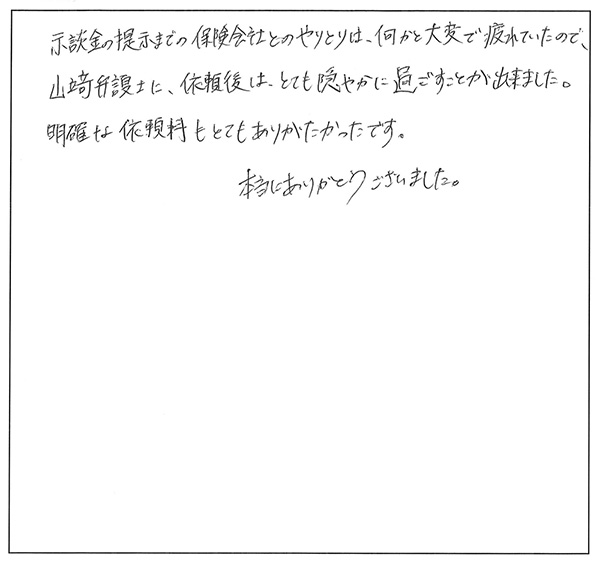 示談金の提示までの保険会社とのやりとりは、何かと大変で疲れていたので、
山﨑弁護士に、依頼後は、とても隠やかに過ごすことが出来ました。
明確な依頼料もとてもありがたかったです。
本当にありがとうございました。